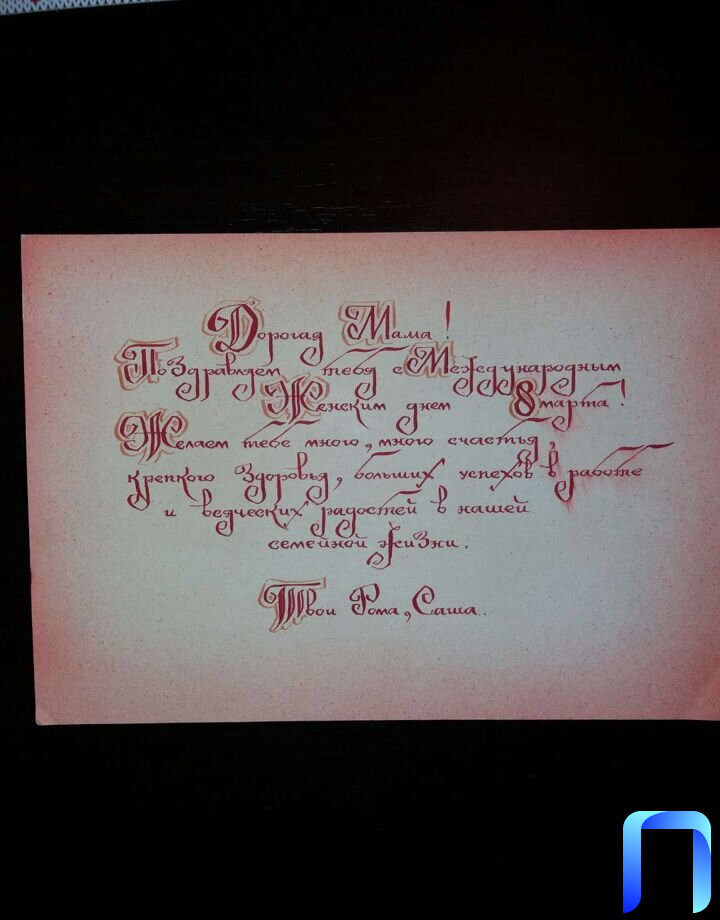 Дорогая Мама!
Поздравляем тебя с Международным
Женским днем 8 марта!
Желаем тебе много, много счастья,
крепкого здоровья, больших успехов в работе
и всяческих радостей в нашей
семейной жизни.
Твои Рома, Саша.